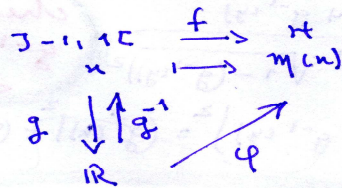 ]-1, 1[ $\xrightarrow{f}$ H
x ⟼ m(x)
g ↓ ↑ g⁻¹
ℝ φ